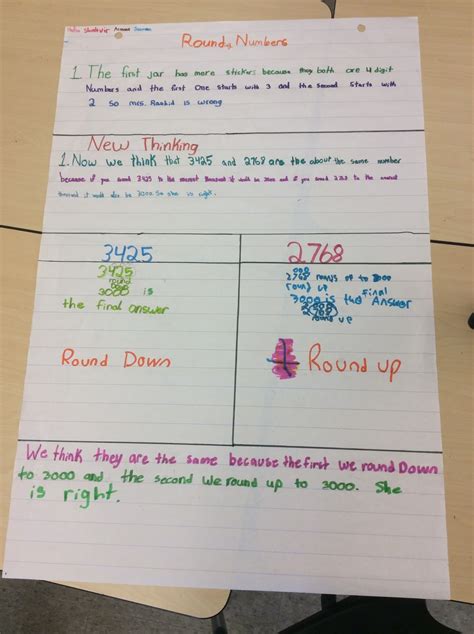 Round Numbers
1. The first jar has more stickers because they both are 4 digit
Numbers and the first One starts with 3 and the second Starts with
2 So mrs. Rashid is wrong
New Thinking
1. Now we think that 3425 and 2768 are the about the same number
because if you round 3425 to the nearest thousand it would be 3000 and if you round 2768 to the nearest
thousand it would also be 3000. So she is right.
3425
3425
3000 is
the final answer
Round Down
2768
2768 rounds up to 3000
round up
3000 is the final Answer
2768
round up
Round up
We think they are the same because the first we round Down
to 3000 and the second We round up to 3000. She
is right.